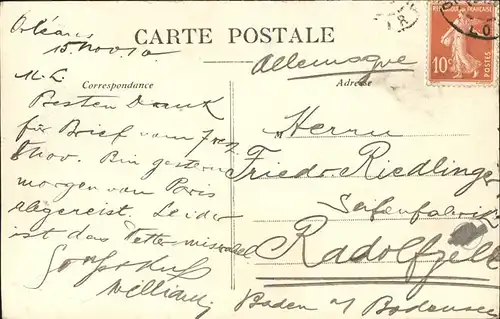 Orléans
15. Nov. 10
CARTE POSTALE
Allemagne
Correspondance
Adresse
M. L.
Besten Dank
für Brief vom 7. resp.
8 Nov. Bin gestern
morgen von Paris
abgereist. Leider
ist das Wetter miserabel
William
Herrn
Friedr. Riedlinger
Seifenfabrik
Radolfzell
Baden a/ Bodensee
10c